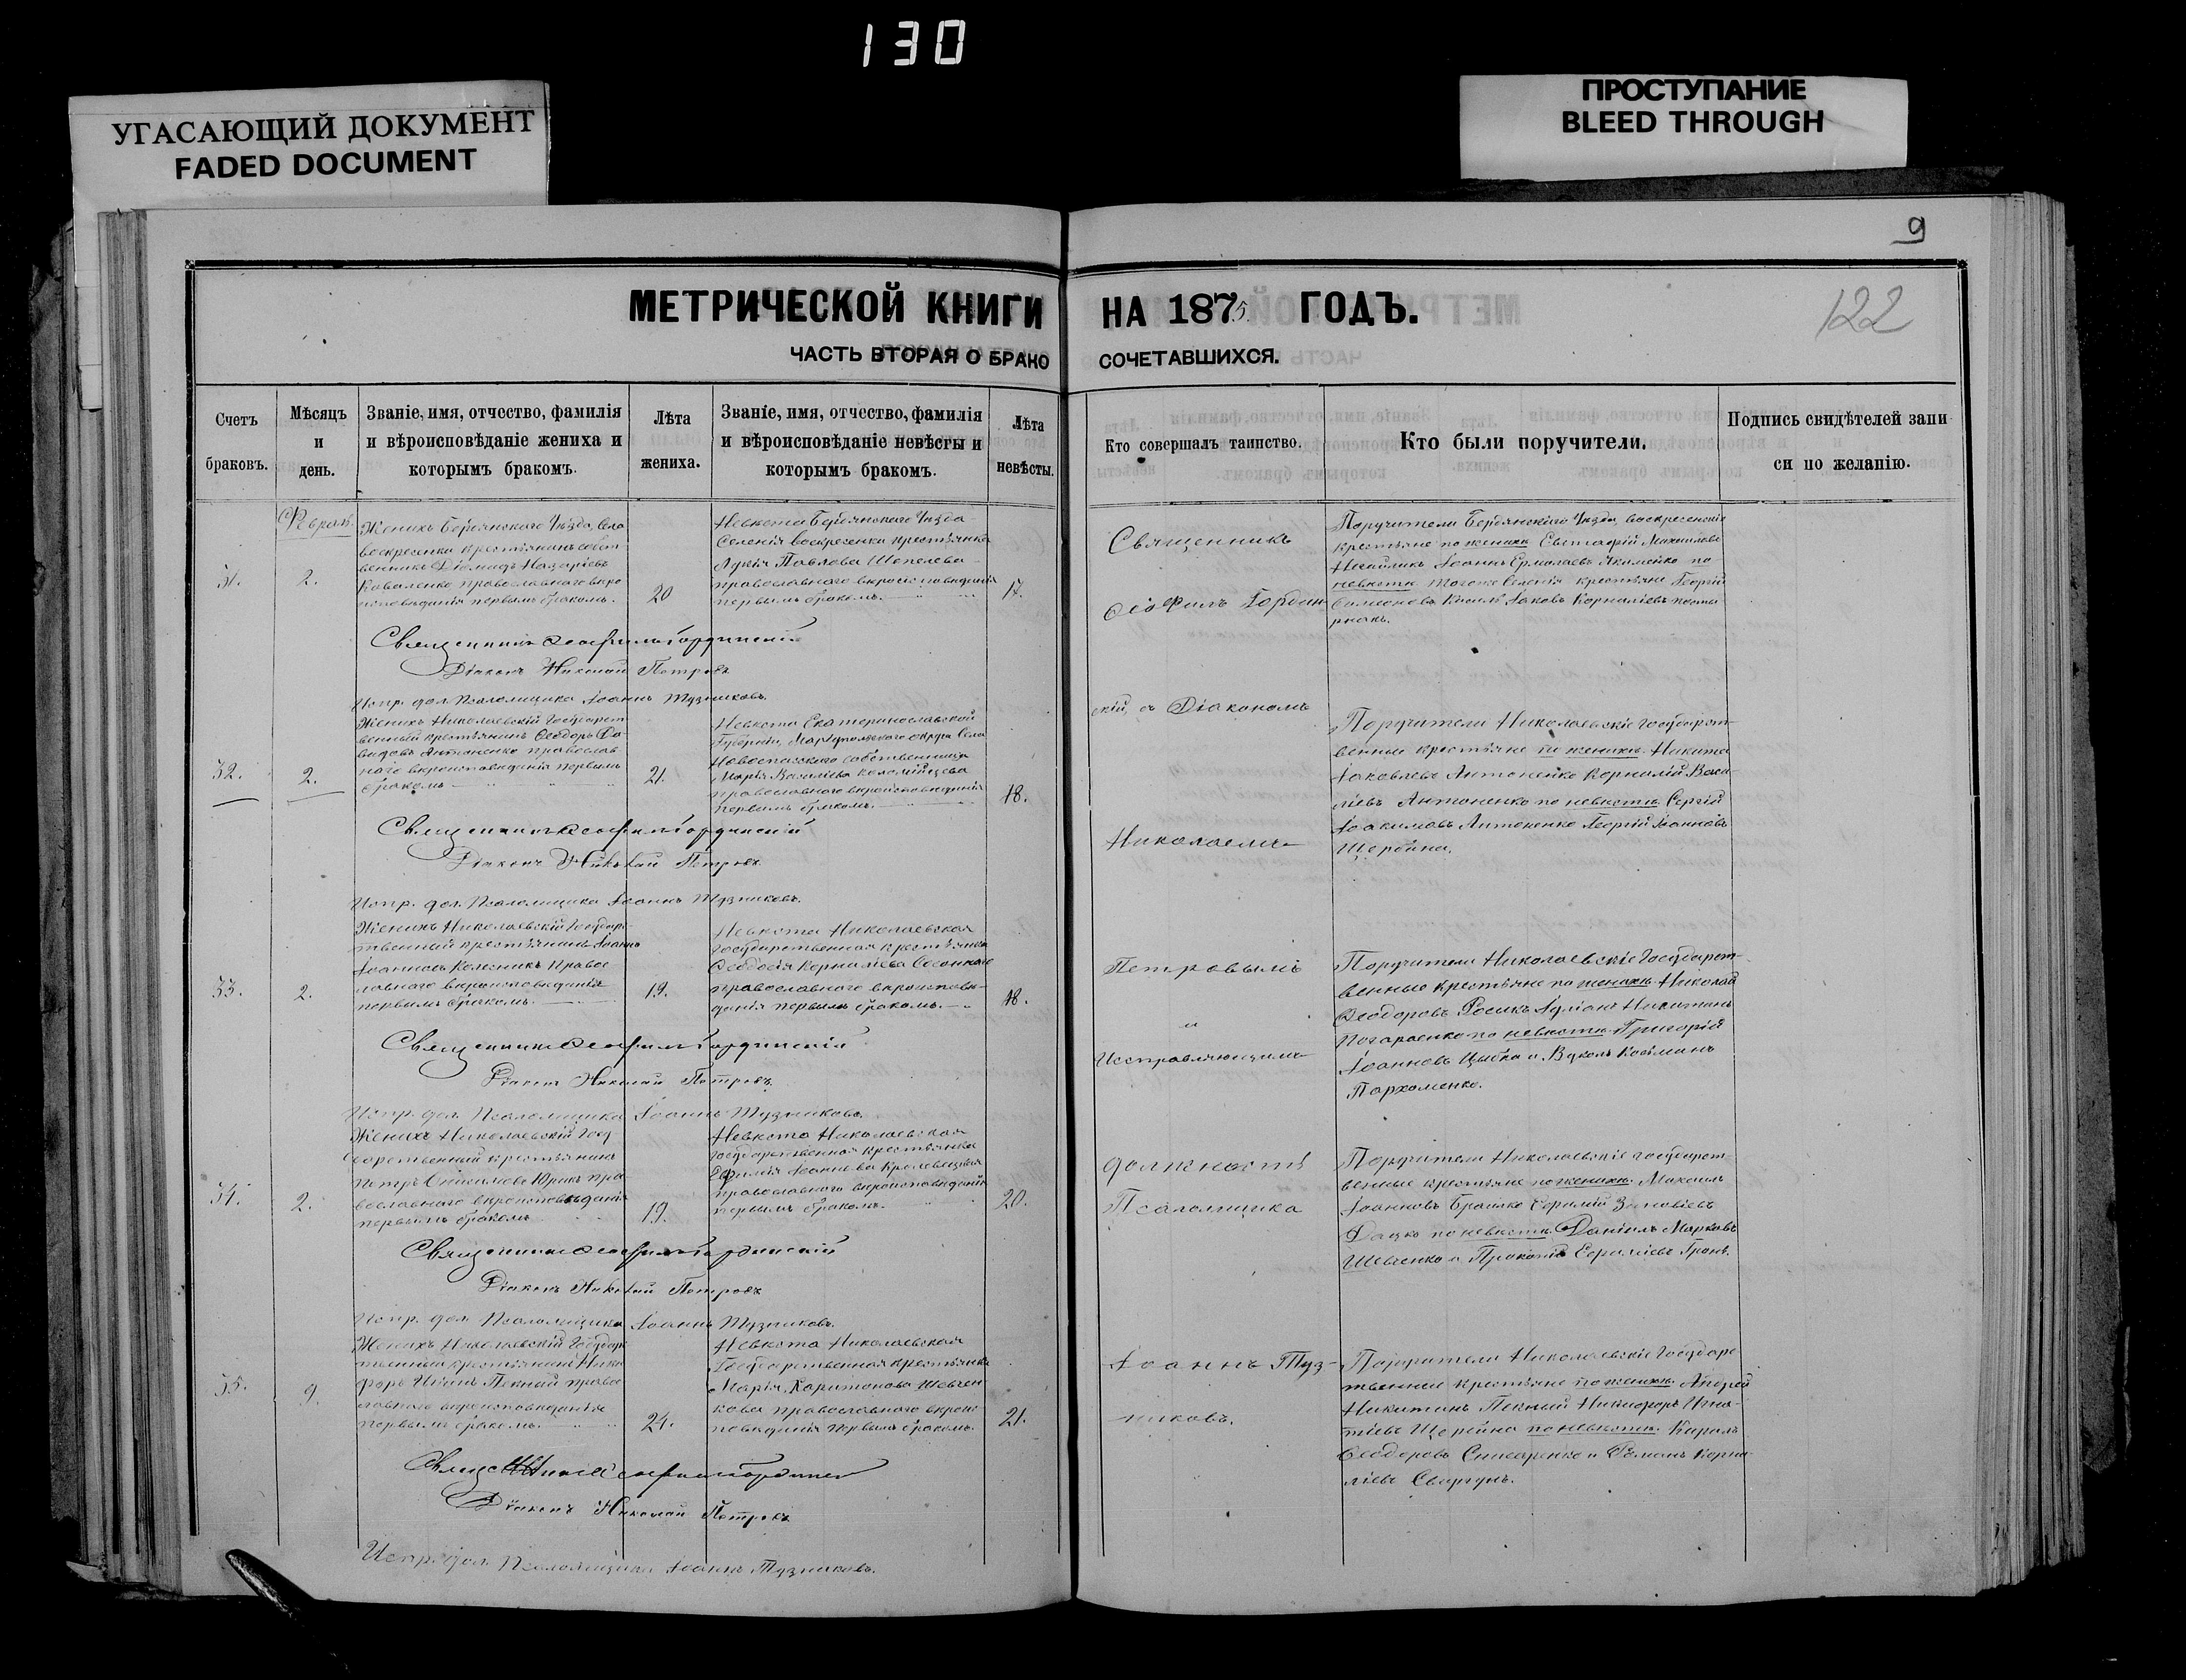 130
УГАСАЮЩИЙ ДОКУМЕНТ
FADED DOCUMENT
ПРОСТУПАНИЕ
BLEED THROUGH
9
122
МЕТРИЧЕСКОЙ КНИГИ НА 1875 ГОДЪ.
ЧАСТЬ ВТОРАЯ О БРАКОСОЧЕТАВШИХСЯ.
Счетъ браковъ.
Мѣсяцъ и день.
Званіе, имя, отчество, фамилія
и вѣроисповѣданіе жениха и
которымъ бракомъ.
Лѣта жениха.
Званіе, имя, отчество, фамилія
и вѣроисповѣданіе невѣсты и
которымъ бракомъ.
Лѣта невѣсты.
Кто совершалъ таинство.
Кто были поручители.
Подпись свидѣтелей запи
си по желанію.
Февраль
31.
2.
Женихъ Бердянского Уѣзда, Села
воскресенки крестьянинъ собст
венникъ Діомидъ Назаріевъ
Коваленко православнаго вѣро
исповѣданія первымъ бракомъ.
20
Невѣста Бердянского Уѣзда
Селенія воскресенки крестьянка
Павлова Шепелева
православнаго вѣроисповѣданія
первымъ бракомъ.
17.
Священникъ Ѳеофилъ Гординскій
Діаконъ Николай Петровъ
Испр. дол. Псаломщика Іоаннъ Тузниковъ.
32.
2.
Женихъ Николаевскій Государст
венный крестьянинъ Ѳеодоръ Да
видовъ Антоненко православ
наго вѣроисповѣданія первымъ
бракомъ
21.
Невѣста Екатеринославской
Губерніи, Маріупольского округа Села
Новоспасского собственница
Марія Василіева Коломійцева
православнаго вѣроисповѣданія
первымъ бракомъ.
18.
Священникъ Ѳеофилъ Гординскій
Діаконъ Николай Петровъ
Испр. дол. Псаломщика Іоаннъ Тузниковъ.
33.
2.
Женихъ Николаевскій Государс
твенный крестьянинъ Іоаннъ
Іоанновъ Колесникъ Правос
лавнаго вѣроисповѣданія
первымъ бракомъ.
19.
Невѣста Николаевская
Государственная крестьянка
Ѳеодосія Корниліева
православнаго вѣроисповѣ-
данія первымъ бракомъ.
18.
Священникъ Ѳеофилъ Гординскій
Діаконъ Николай Петровъ
Испр. дол. Псаломщика Іоаннъ Тузниковъ.
34.
2.
Женихъ Николаевскій Госу
дарственный крестьянинъ
Петръ Юрикъ пра-
вославнаго вѣроисповѣданія
первымъ бракомъ
19.
Невѣста Николаевская
Государственная крестьянка
Іоаннова
православнаго вѣроисповѣданія
первымъ бракомъ.
20.
Священникъ Ѳеофилъ Гординскій
Діаконъ Николай Петровъ
Испр. дол. Псаломщика Іоаннъ Тузниковъ.
35.
9.
Женихъ Николаевскій Государс
твенный крестьянинъ Ники
форъ Пекный правос
лавнаго вѣроисповѣданія
первымъ бракомъ.
24.
Невѣста Николаевская
Государственная крестьянка
Марія Харитонова Шевчен
кова православнаго вѣроис
повѣданія первымъ бракомъ.
21.
Діаконъ Николай Петровъ
Испр. дол. Псаломщика Іоаннъ Тузниковъ.
Священникъ
Ѳеофилъ Гордин
скій, съ Діакономъ
Николаемъ
Петровымъ
и
Исправляющимъ
должность
Псаломщика
Іоаннъ Туз-
никовъ.
Поручители Бердянского Уѣзда, воскресенскіе
крестьяне по женихѣ Евстафій Михаиловъ
Іоаннъ Ермолаевъ Якименко по
невѣстѣ тогоже Селенія крестьяне Георгій
Іаковъ Корниліевъ
Поручители Николаевскіе государст-
венные крестьяне по женихѣ Никита
Іаковлевъ Антоненко Корнилій Васи-
ліевъ Антоненко по невѣстѣ Сергій
Іоакимовъ Антоненко Георгій Іоанновъ
Щербина.
Поручители Николаевскіе Государст-
венные крестьяне по женихѣ Николай
Ѳеодоровъ Никитинъ
по невѣстѣ Григорій
Іоанновъ Цыбка и Козминъ
Пархоменко.
Поручители Николаевскіе государст-
венные крестьяне по женихѣ Михаилъ
Іоанновъ Зиновіевъ
Дацко по невѣстѣ Даніилъ Марковъ
Шевченко и Прокопій
Поручители Николаевскіе Государс
твенные крестьяне по женихѣ Андрей
Никитинъ Пекный Никифоръ Игна-
тіевъ Щербина по невѣстѣ Кирилъ
Ѳеодоровъ и Романъ Корни-
ліевъ